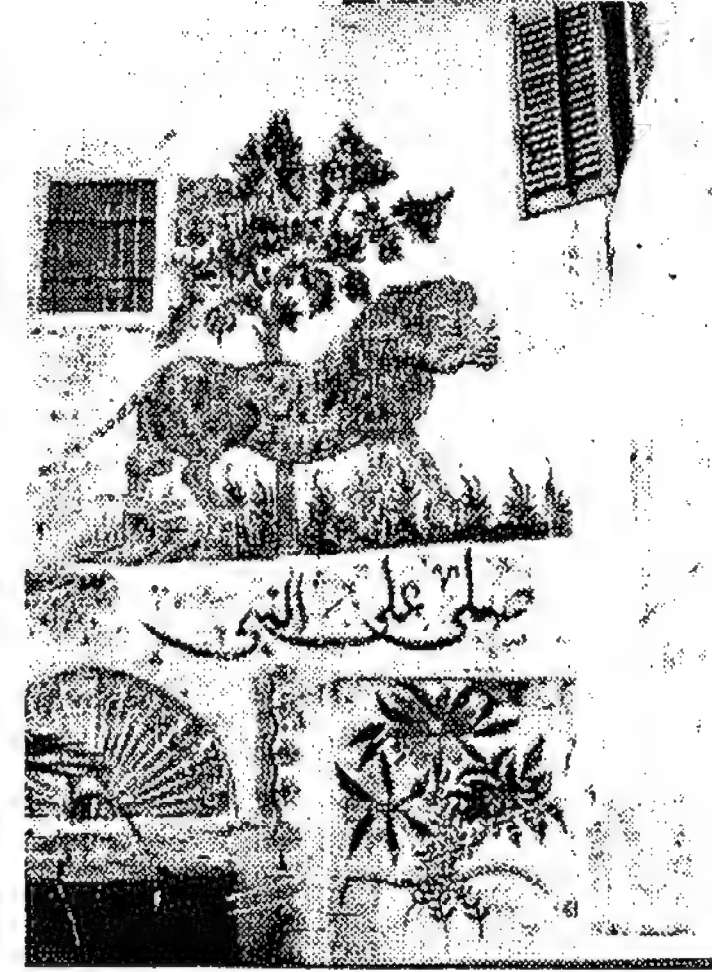 صلى على النبى